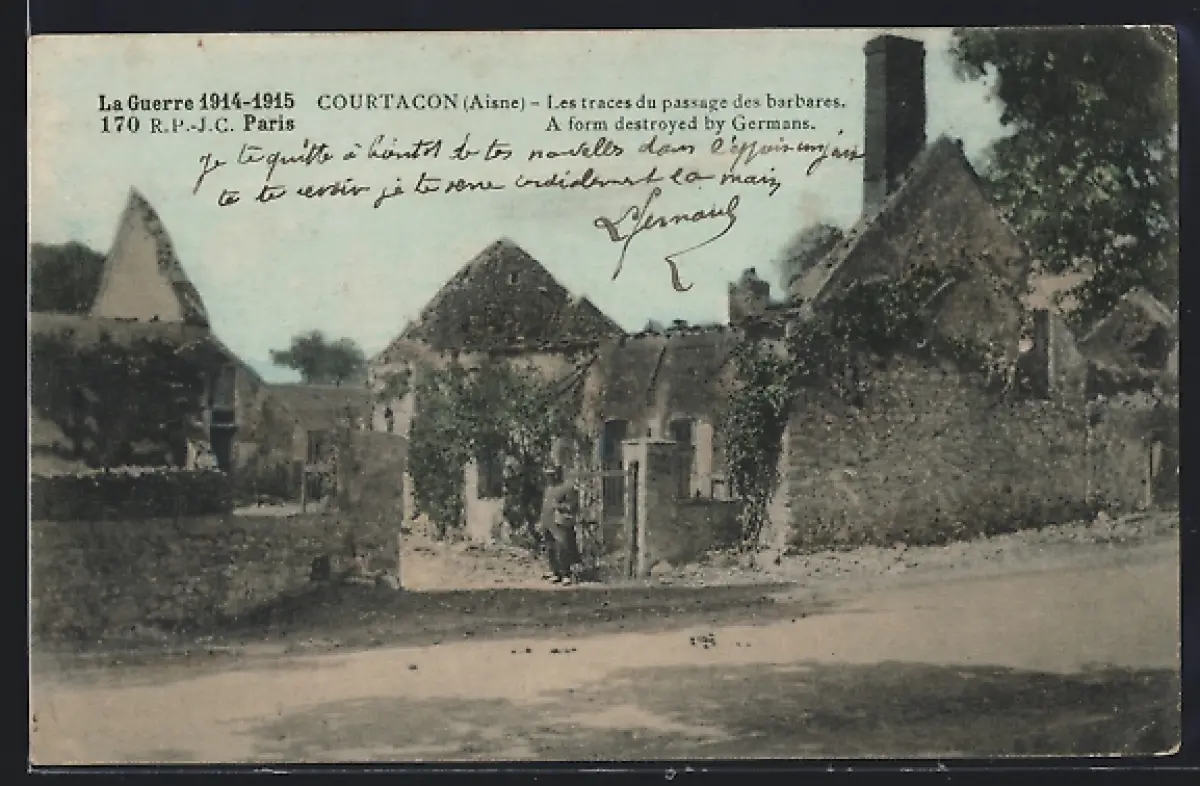 La Guerre 1914-1915 COURTACON (Aisne) - Les traces du passage des barbares.
170 R.P.-J.C. Paris A form destroyed by Germans.
Je te quitte à bientôt de tes nouvelles dans l'espoir
te te revoir je te serre cordialement la main